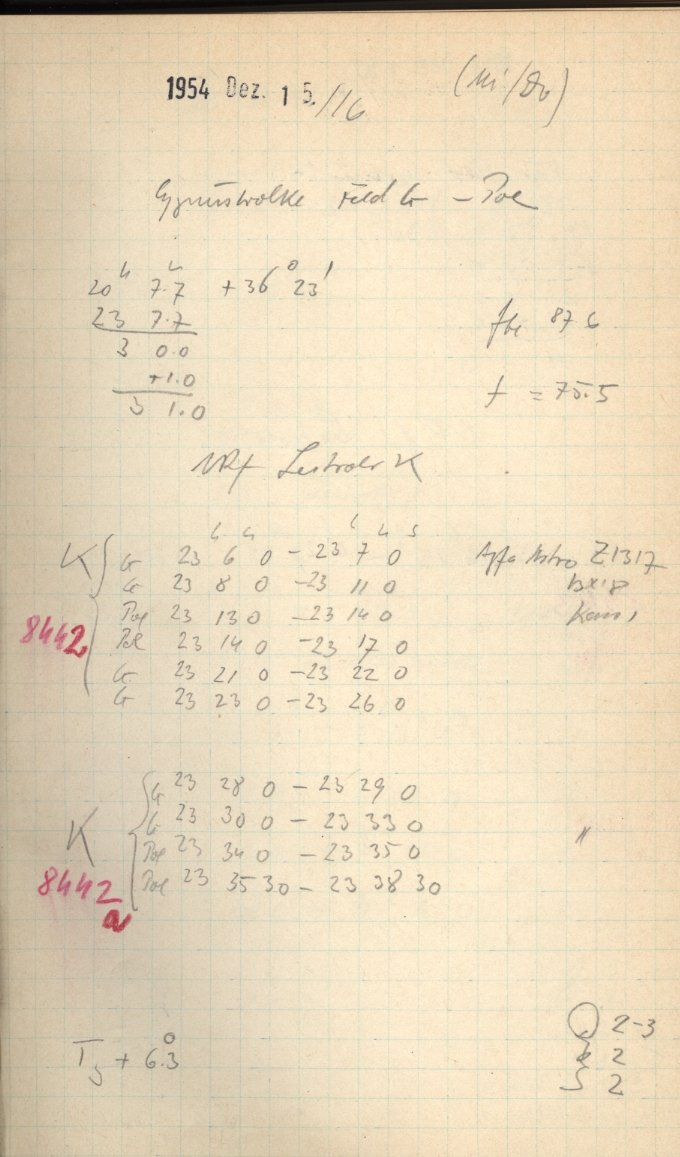 1954 Dez. 15./16 (Mi/Do)
Cygnuswolke Feld G - Pol
20h 7.7 +36° 23'
23 7.7
3 0.0
+1.0
3 1.0
87 6
f = 75.5
K
G 23 6 0 - 23 7 0 Agfa Astro Z1317
G 23 8 0 - 23 11 0
Pol 23 13 0 - 23 14 0
8442 Pol 23 14 0 - 23 17 0
G 23 21 0 - 23 22 0
G 23 23 0 - 23 26 0
G 23 28 0 - 23 29 0
K G 23 30 0 - 23 33 0 "
Pol 23 34 0 - 23 35 0
8442a Pol 23 35 30 - 23 38 30
2-3
T + 6.3° 2
2